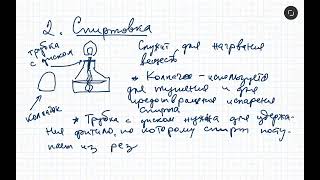 2. Спиртовка
Трубка
с диском
Служит для нагревания
веществ
Колпачок
* Колпачок - используется
для тушения и для
предотвращения испарения
спирта
* Трубка с диском нужна для удержа-
ния фитиля, по которому спирт посту-
пает из рез